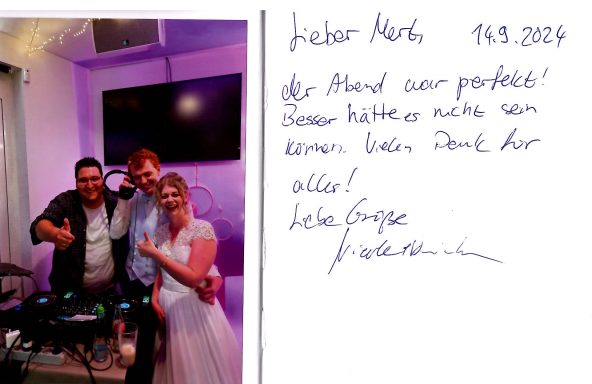 Lieber Mert, 14.9.2024
der Abend war perfekt!
Besser hätte es nicht sein
können. Vielen Dank für
alles!
Liebe Grüße
Nicole